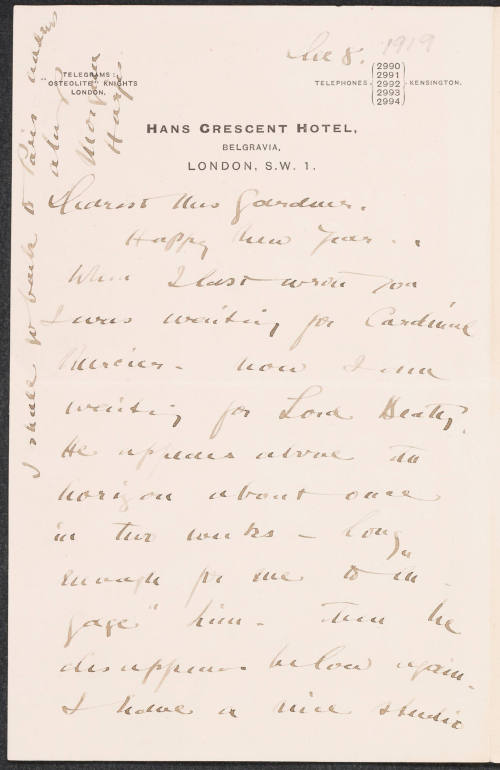 Dec 8. 1919
TELEGRAMS:
"OSTEOLITE" KNIGHTS
LONDON.
TELEPHONES
2990
2991
2992
2993
2994
KENSINGTON.
HANS CRESCENT HOTEL,
BELGRAVIA,
LONDON, S.W. 1.
Dearest Mrs Gardner.
Happy New Year . .
When I last wrote you
I was waiting for Cardinal
Mercier - now I am
waiting for Lord Beatty.
He appears above the
horizon about once
in two weeks - long
enough for me to "en-
gage" him - then he
disappears below again.
I have a nice studio
I shall go back to Paris address
always
Morgan
Harjes